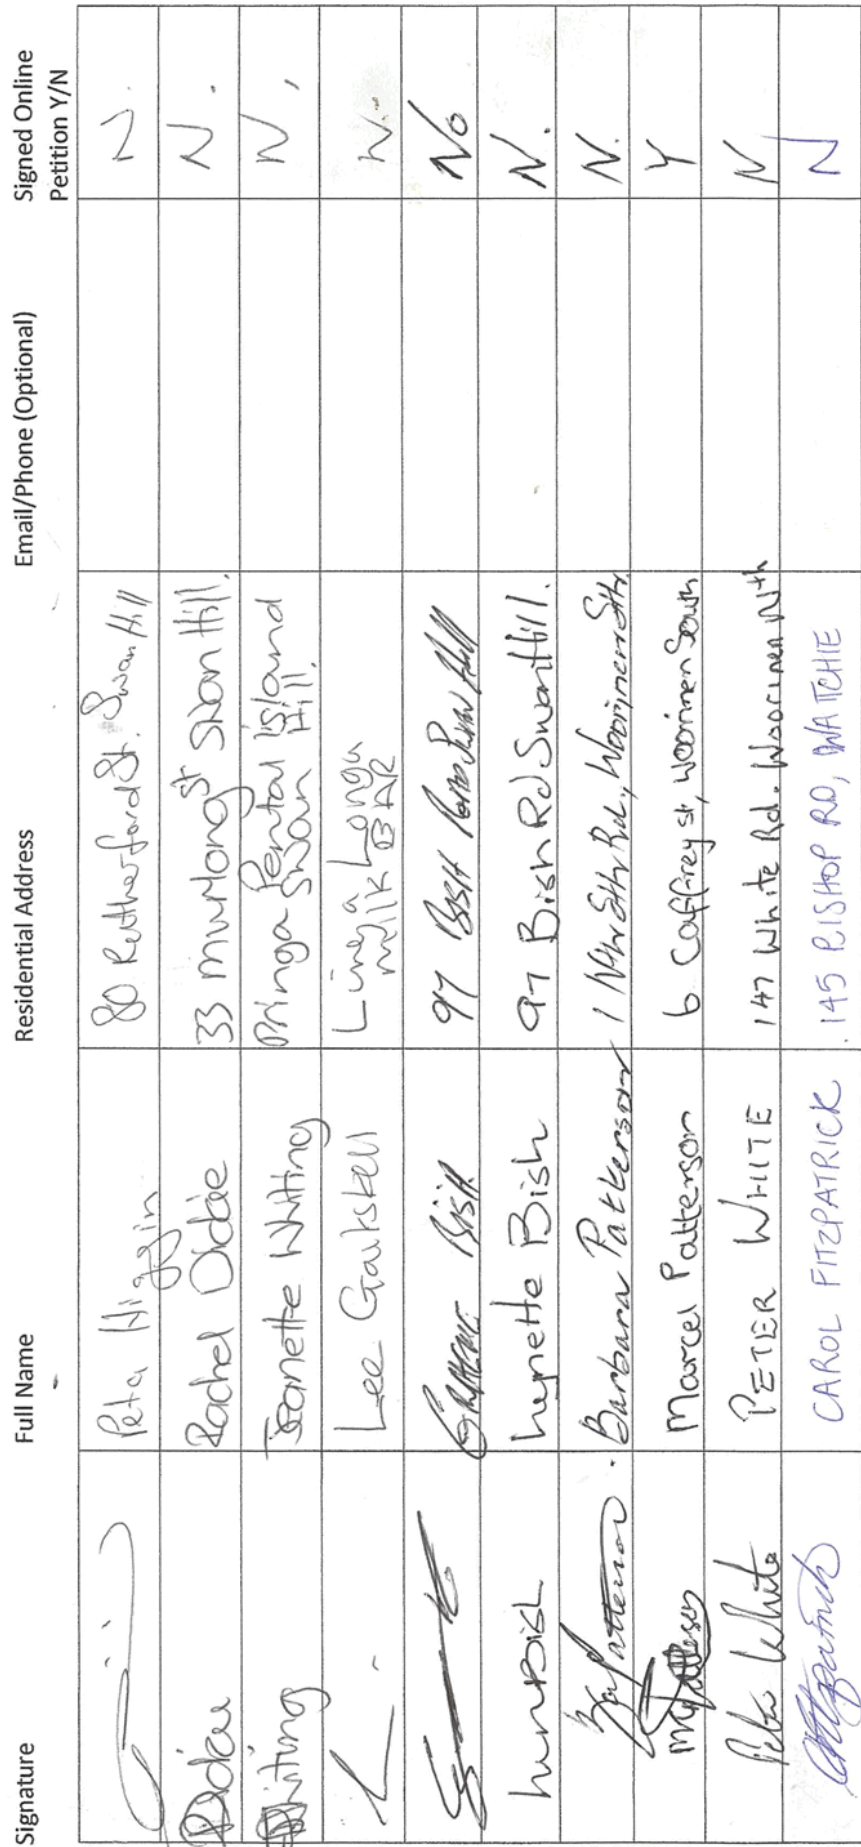 Signature Full Name Residential Address Email/Phone (Optional) Signed Online
Petition Y/N
Peta Higgin 80 Rutherford St. Swan Hill N.
Rachel Dickie 33 Murlong St Swan Hill. N.
Whiting Jeanette Whiting Pringa Pental Island
Swan Hill. N.
Lee Linga Longa
milk BAR N.
Bish 97 Bish Swan Hill No
Lyn Bish Lynette Bish 97 Bish Rd Swan Hill. N.
Patterson Barbara Patterson 1 Nth Sth Rd, Woorinen Sth N.
Marcel Patterson 6 Caffrey st, Woorinen South Y
Peter White PETER WHITE 147 White Rd. Woorinen Nth N
CFitzpatrick CAROL FITZPATRICK 145 BISHOP RD, WAITCHIE N